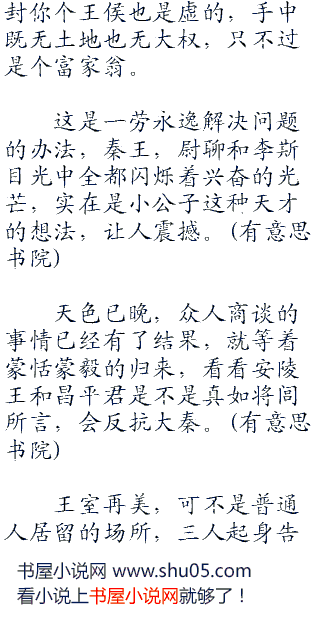 封你个王侯也是虚的，手中
既无土地也无大权，只不过
是个富家翁。
这是一劳永逸解决问题
的办法，秦王，尉聊和李斯
目光中全都闪烁着兴奋的光
芒，实在是小公子这种天才
的想法，让人震撼。(有意思
书院)
天色已晚，众人商谈的
事情已经有了结果，就等着
蒙恬蒙毅的归来，看看安陵
王和昌平君是不是真如将闾
所言，会反抗大秦。(有意思
书院)
王室再美，可不是普通
人居留的场所，三人起身告
书屋小说网 www.shu05.com
看小说上书屋小说网就够了！